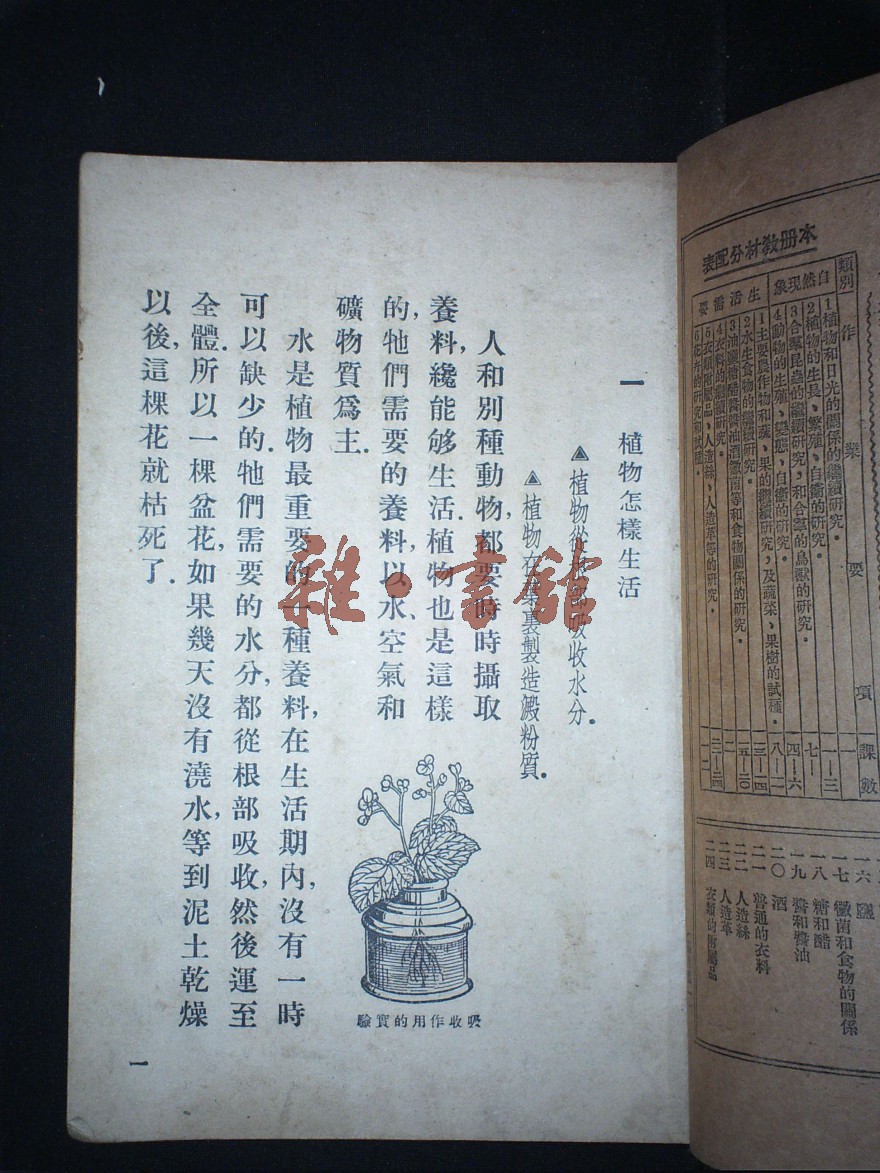 本册教材分配表
類別 作業要項 課數
自然現象
1植物和日光的關係的繼續研究。
2植物的生長、繁殖、自衛的研究。
3合羣昆蟲的繼續研究，和合羣的鳥獸的研究。 四—六
4動物的生殖、變態、自衛的研究。
生活需要
1主要農作物和蔬、果的繼續研究，及蔬菜、果樹的試種。
2水生食物的研究。
4衣料的繼續研究。
5衣類附屬品、人造絲、人造革等的研究。
一六 鹽
一七 黴菌和食物的關係
一八 糖和醋
一九 醬和醬油
二〇 酒
二一 普通的衣料
二二 人造絲
二三 人造革
二四 衣類的附屬品
一 植物怎樣生活
▲植物從根部吸收水分．
▲植物在葉裏製造澱粉質．
人和別種動物，都要時時攝取
養料，纔能够生活．植物也是這樣
的，牠們需要的養料，以水、空氣和
礦物質爲主．
水是植物最重要的一種養料，在生活期內，沒有一時
可以缺少的．牠們需要的水分，都從根部吸收，然後運至
全體．所以一棵盆花，如果幾天沒有澆水，等到泥土乾燥
以後，這棵花就枯死了．
吸收作用的實驗
一
雜·書館